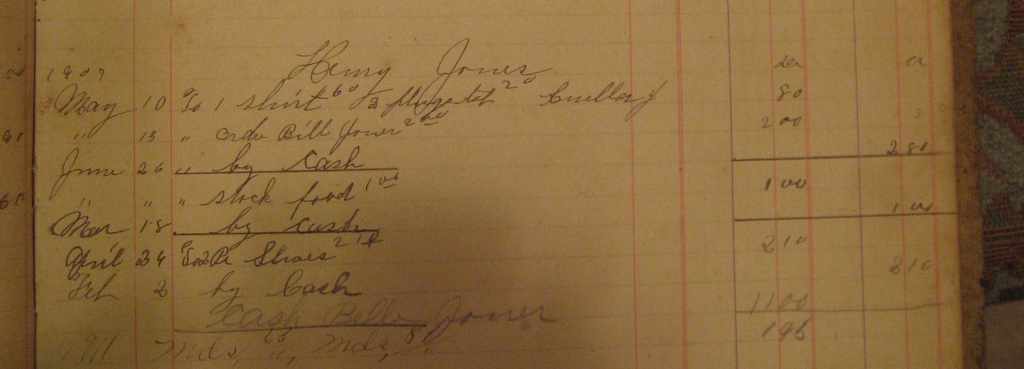 1909 Henry Jones
May 10 To 1 shirt 60 2 plugs tob 20 80
" 13 " order Bill Jones 2 00 2 00
June 26 " by Cash 2 80
" " " stock food 1 00 1 00
Mar 18 by Cash 1 00
April 24 To 2 Pr Shoes 2 10 2 10
Feb 2 by Cash 2 10
Cash Belle Jones 11 00
1911 Mds, Mds, 195